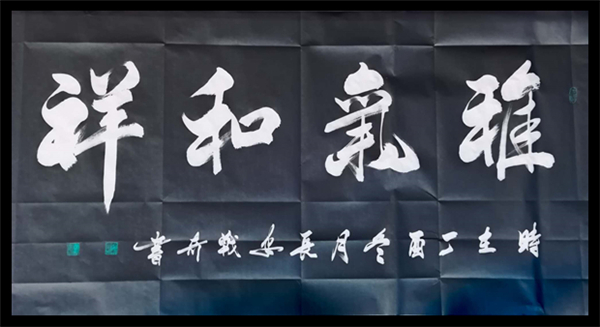 雅氣和祥
時在丁酉冬月長安戰書